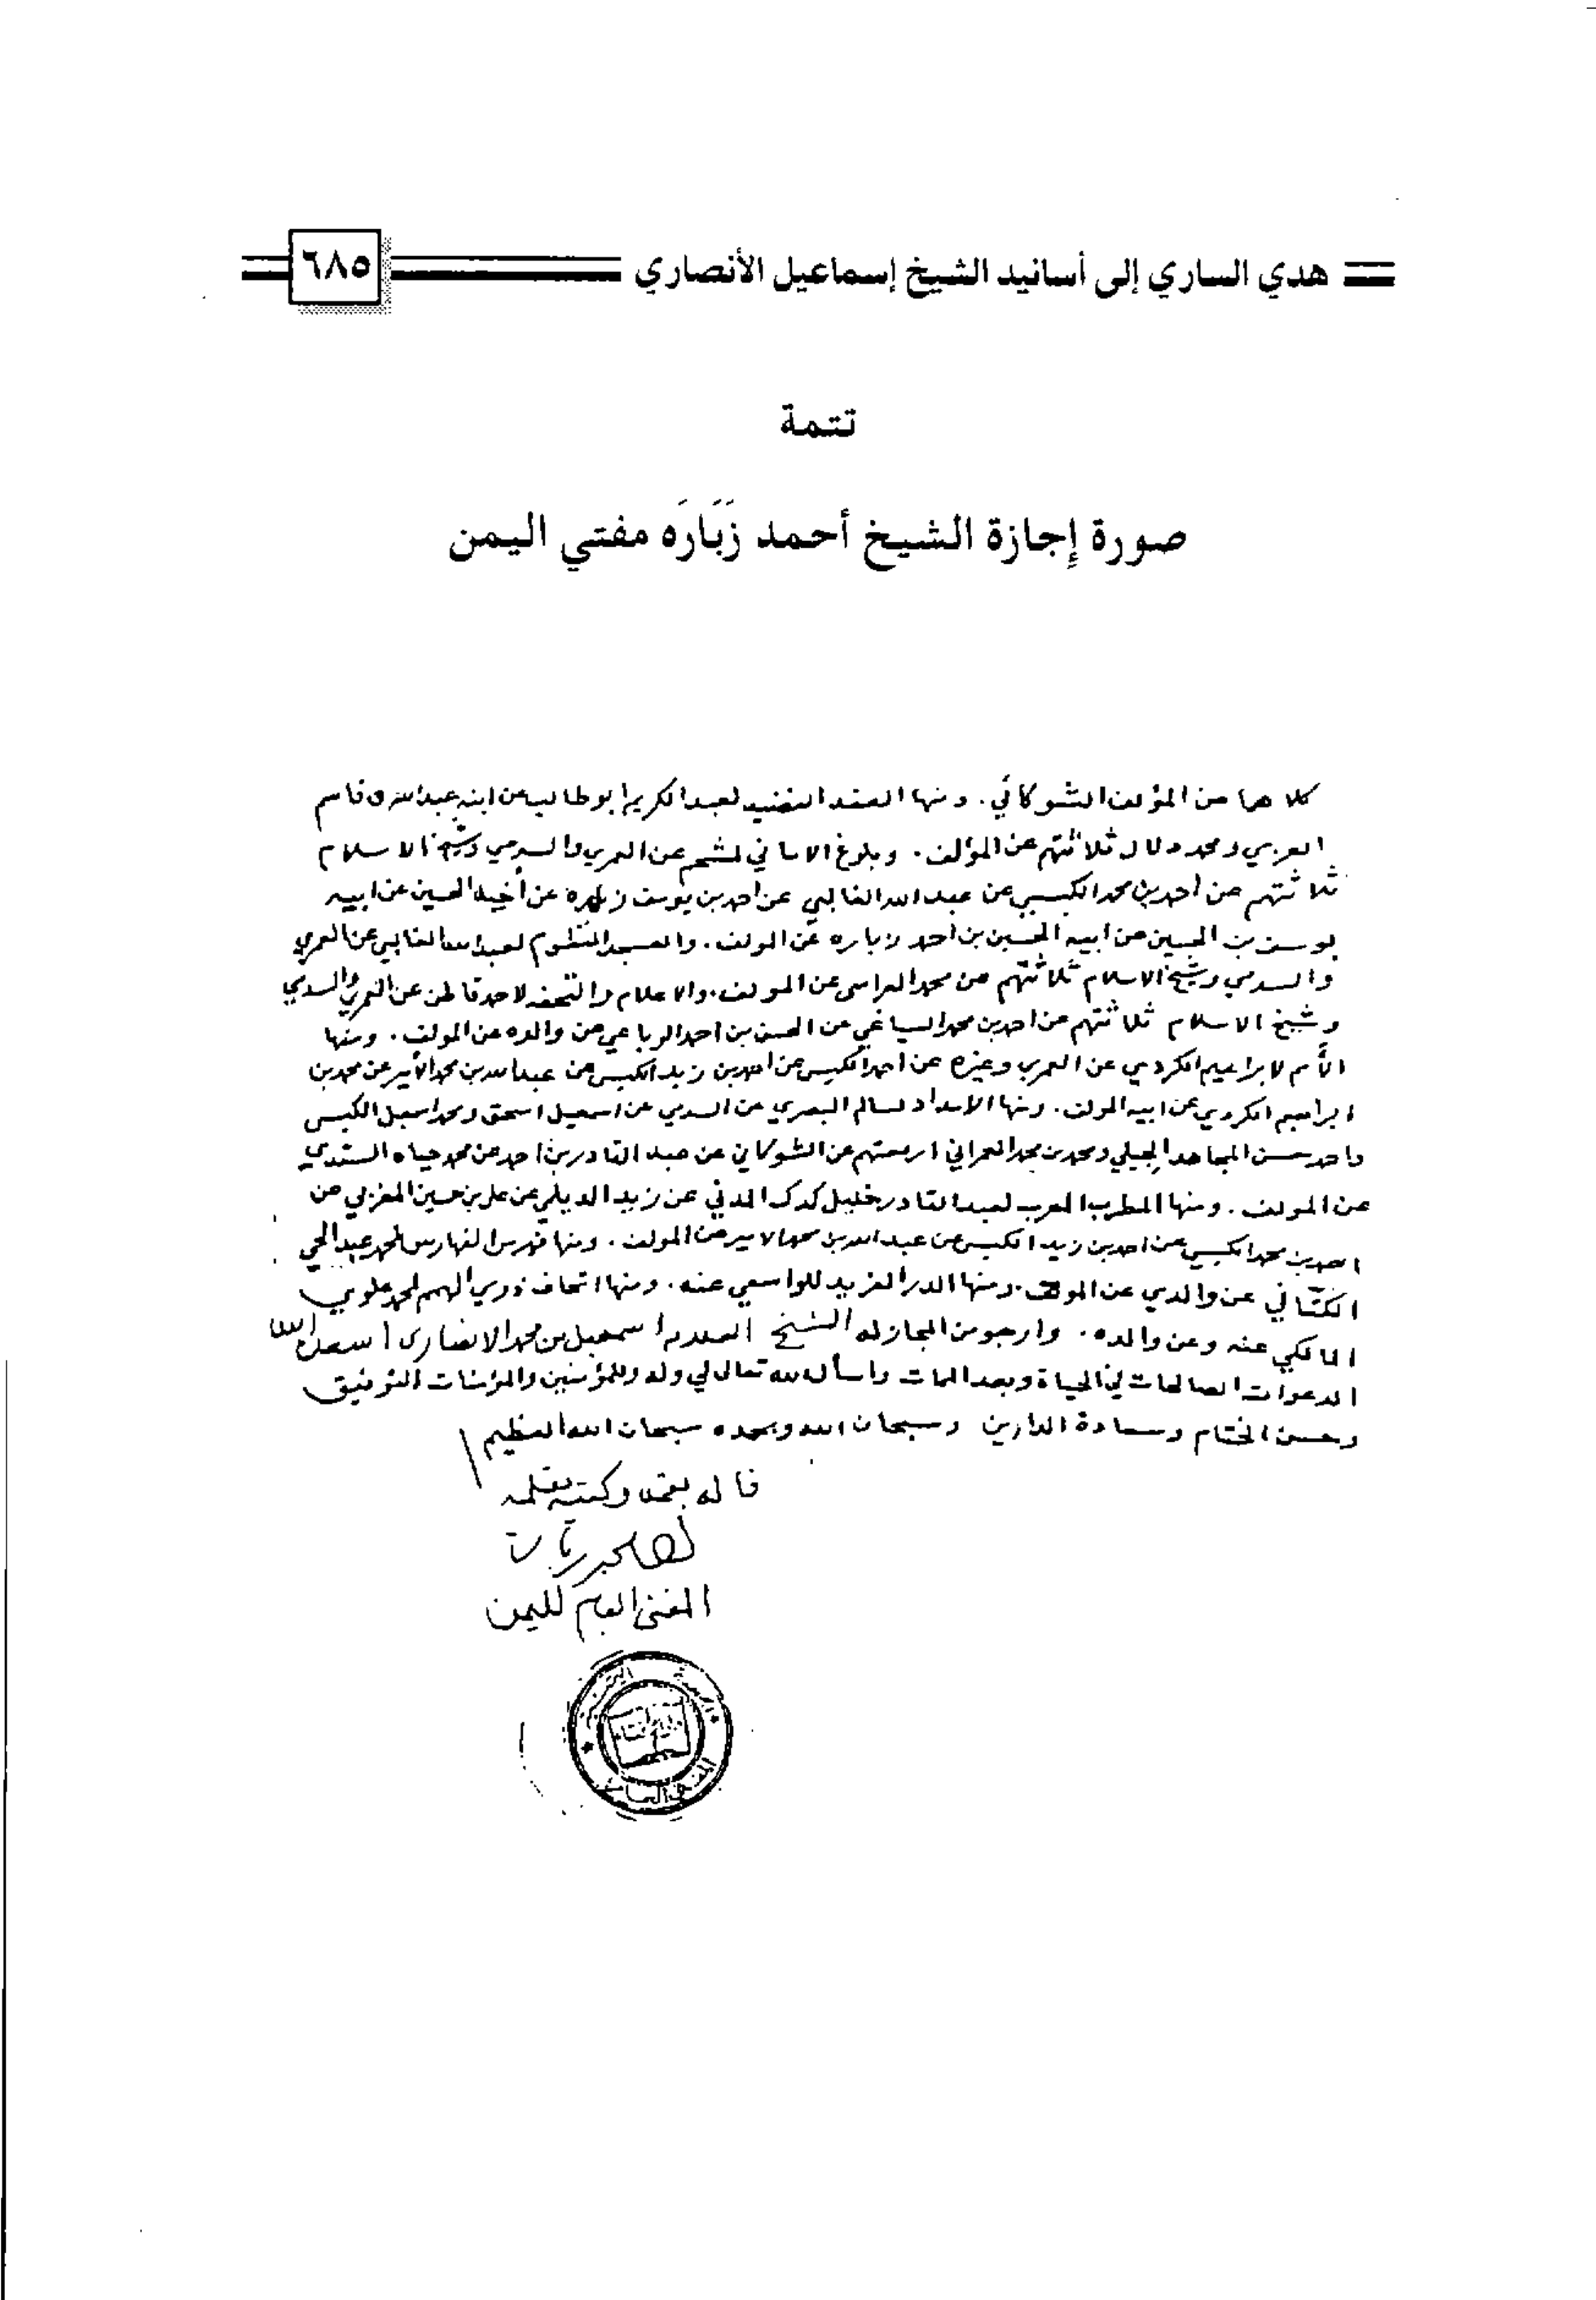 هدي الساري إلى أسانيد الشيخ إسماعيل الأنصاري
٦٨٥
تتمة
صورة إجازة الشيخ أحمد زَبَارَه مفتي اليمن
كلاهما عن المؤلف الشوكاني . ومنها العقد النضيد لعبد الكريم ابو طالب عن ابنه عبد الله وقاسم
العزي ومحمد دلال ثلاثتهم عن المؤلف . وبلوغ الاماني لمشحم عن العمري والسدمي وشيخ الاسلام
ثلاثتهم عن أحمد بن محمد الكبسي عن عبد الله الغالبي عن احمد بن يوسف زباره عن أخيه الحسين عن ابيه
يوسف بن الحسين عن ابيه الحسين بن احمد زباره عن المولف . والعسجد المنظوم لعبد الله الغالبي عن العمري
والسدمي وشيخ الاسلام ثلاثتهم عن محمد العراسي عن المولف . والاعلام والتحفه لاحمد قاطن عن العمري والسدمي
وشيخ الاسلام ثلاثتهم عن احمد بن محمد السياغي عن الحسن بن احمد الرباعي عن والده عن المولف . ومنها
الأمم لابراهيم الكردي عن العمري وغيره عن احمد الكبسي عن احمد بن زيد الكبسي عن عبد الله بن محمد الأمير عن محمد بن
ابراهيم الكردي عن ابيه المولف . ومنها الامداد لسالم البصري عن السدمي عن اسمعيل اسحق ومحمد اسمعيل الكبسي
واحمد حسن المجاهد الجبلي ومحمد بن محمد العمراني اربعتهم عن الشوكاني عن عبد القادر بن احمد عن محمد حياه السندي
عن المولف . ومنها المطرب المعرب لعبد القادر خليل كدك المدني عن زيد الديلمي عن علي بن حسين المغربي عن
احمد بن محمد الكبسي عن احمد بن زيد الكبسي عن عبد الله بن محمد الامير عن المولف . ومنها فهرس الفهارس لمحمد عبد الحي
الكتّاني عن والدي عن المولف . ومنها الدر الفريد للواسعي عنه . ومنها اتحاف ذوي الهمم لمحمد علوي
المالكي عنه وعن والده . وارجو من المجاز له الشيخ العلامه اسمعيل بن محمد الانصاري اسعده الله
الدعوات الصالحات في الحياة وبعد الممات واسأل الله تعالى لي وله وللمؤمنين والمؤمنات التوفيق
وحسن الختام وسعادة الدارين وسبحان الله وبحمده سبحان الله العظيم
قاله بفمه وكتبه بقلمه
المفتي العام لليمن